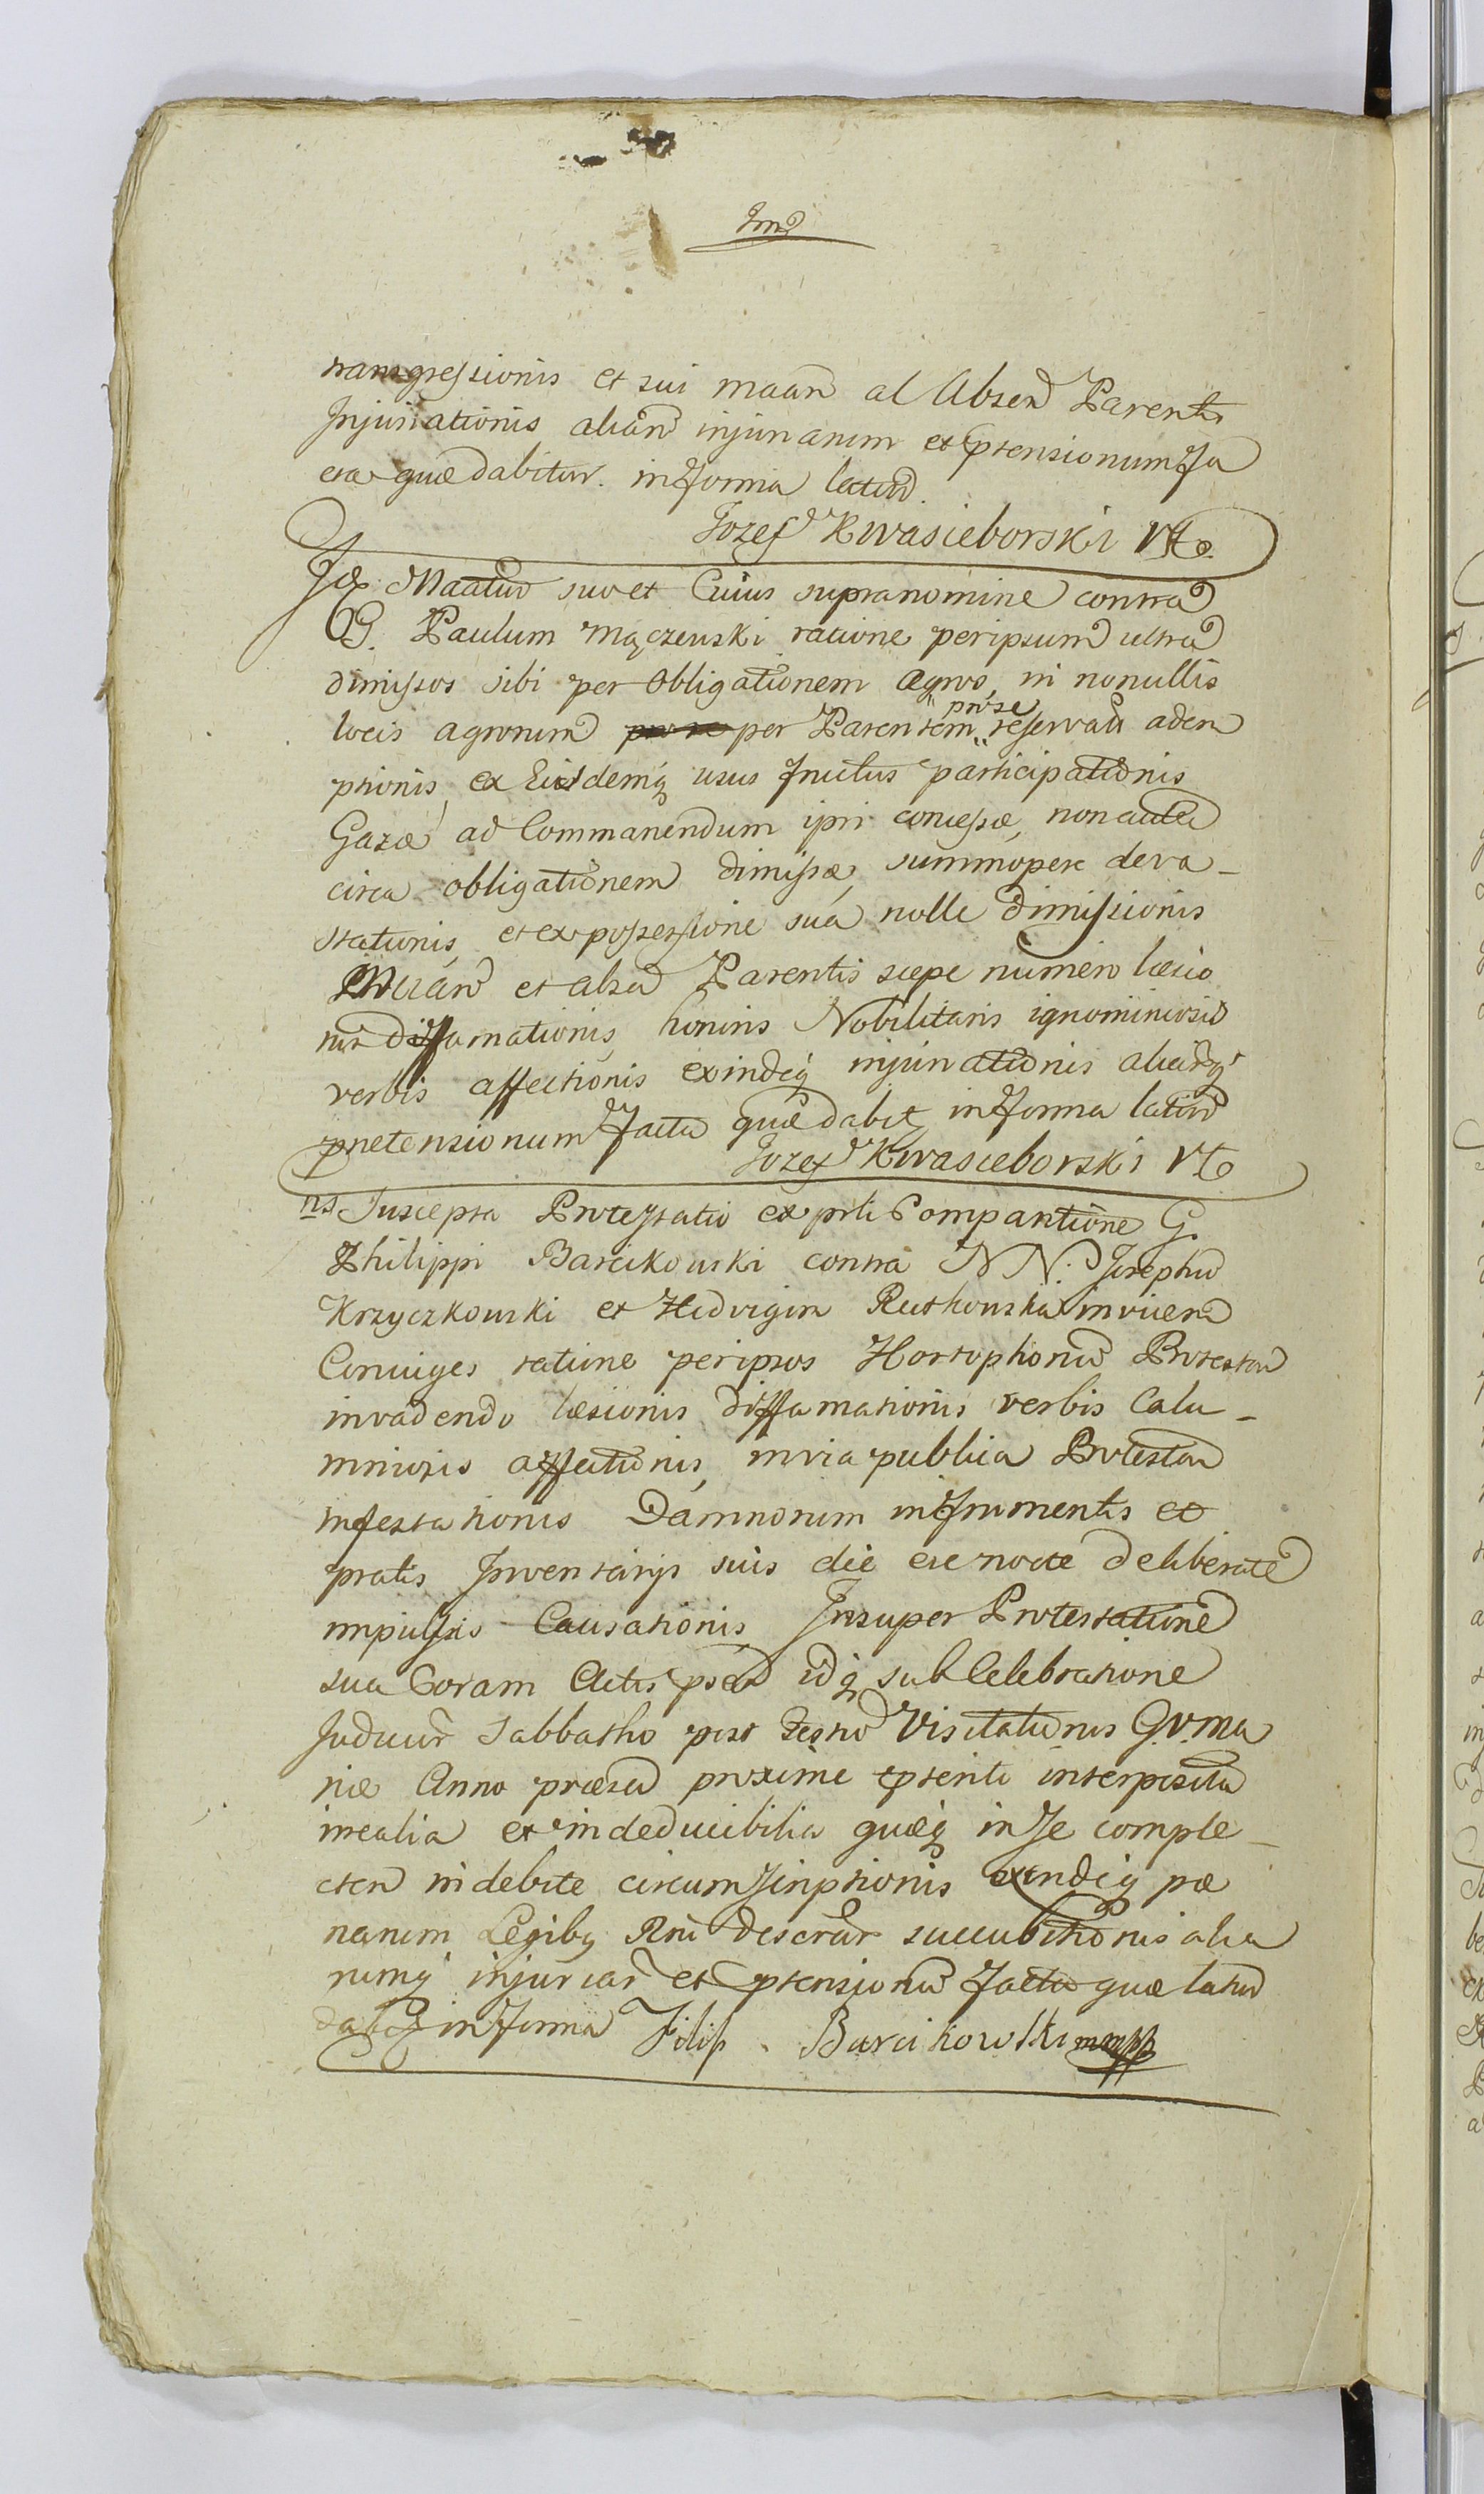 transgressionis et sui maan al Absen Parentis
Injuriationis aliarū injuriarum et ptensionum Fa
cta quæ dabitur. in Forma latiud.
Jozef Kwasieborski Vto.
Id. Maatur suo et Cuius supra nomine contra
G. Paulum Mączewski ratione per ipsum ultra
dimissos sibi per Obligationem agros, in nonullis
locis agrorum per Parentem pro se reservati adem
ptionis, ex Eisdemq usus fructus participationis
Gazæ ad Commanendum ipsi concessæ, non autem
circa obligationem dimissæ, summopere deva-
stationis, et ex possessione sua nolle dimissionis
et absen Parentis sæpe numero læsio
nis diffamationis, honoris Nobilitaris ignominiosis
verbis affectionis exindeq injuriationis aliarūq
pretensionum Facta quæ dabit, in Forma latiud
Jozef Kwasieborski Vto
ns Suscepta Protestatio ex prli Compartione G.
Philippi Barcikowski contra N N. Josephū
Krzyczkowski et Hedvigim Rutkowska invicem
Coniuges ratione per ipsos Hortophoriū Protestan
invadendo læsionis diffamationis verbis Calu-
mniosis affectionis, in via publica Protestan
infestationis Damnorum in Frumentis et
pratis Inventarijs suis die ac nocte deliberate
impulsis Causationis, Insuper Protestatione
sua Coram Actis psen idq sub Celebratione
Judicior Sabbatho post Festū Visitationis G.V.Ma
riæ Anno præsen proxime ptenti interposita
irrealia et indeducibilia quæq in Se comple-
cten indebite circumscriptionis exindeq pæ
narum Legibq Rni descrar succubitionis alia
rumq injuriar et ptensionū Facta quæ latiud
dabit in Forma Filip. Barcikowski mpp